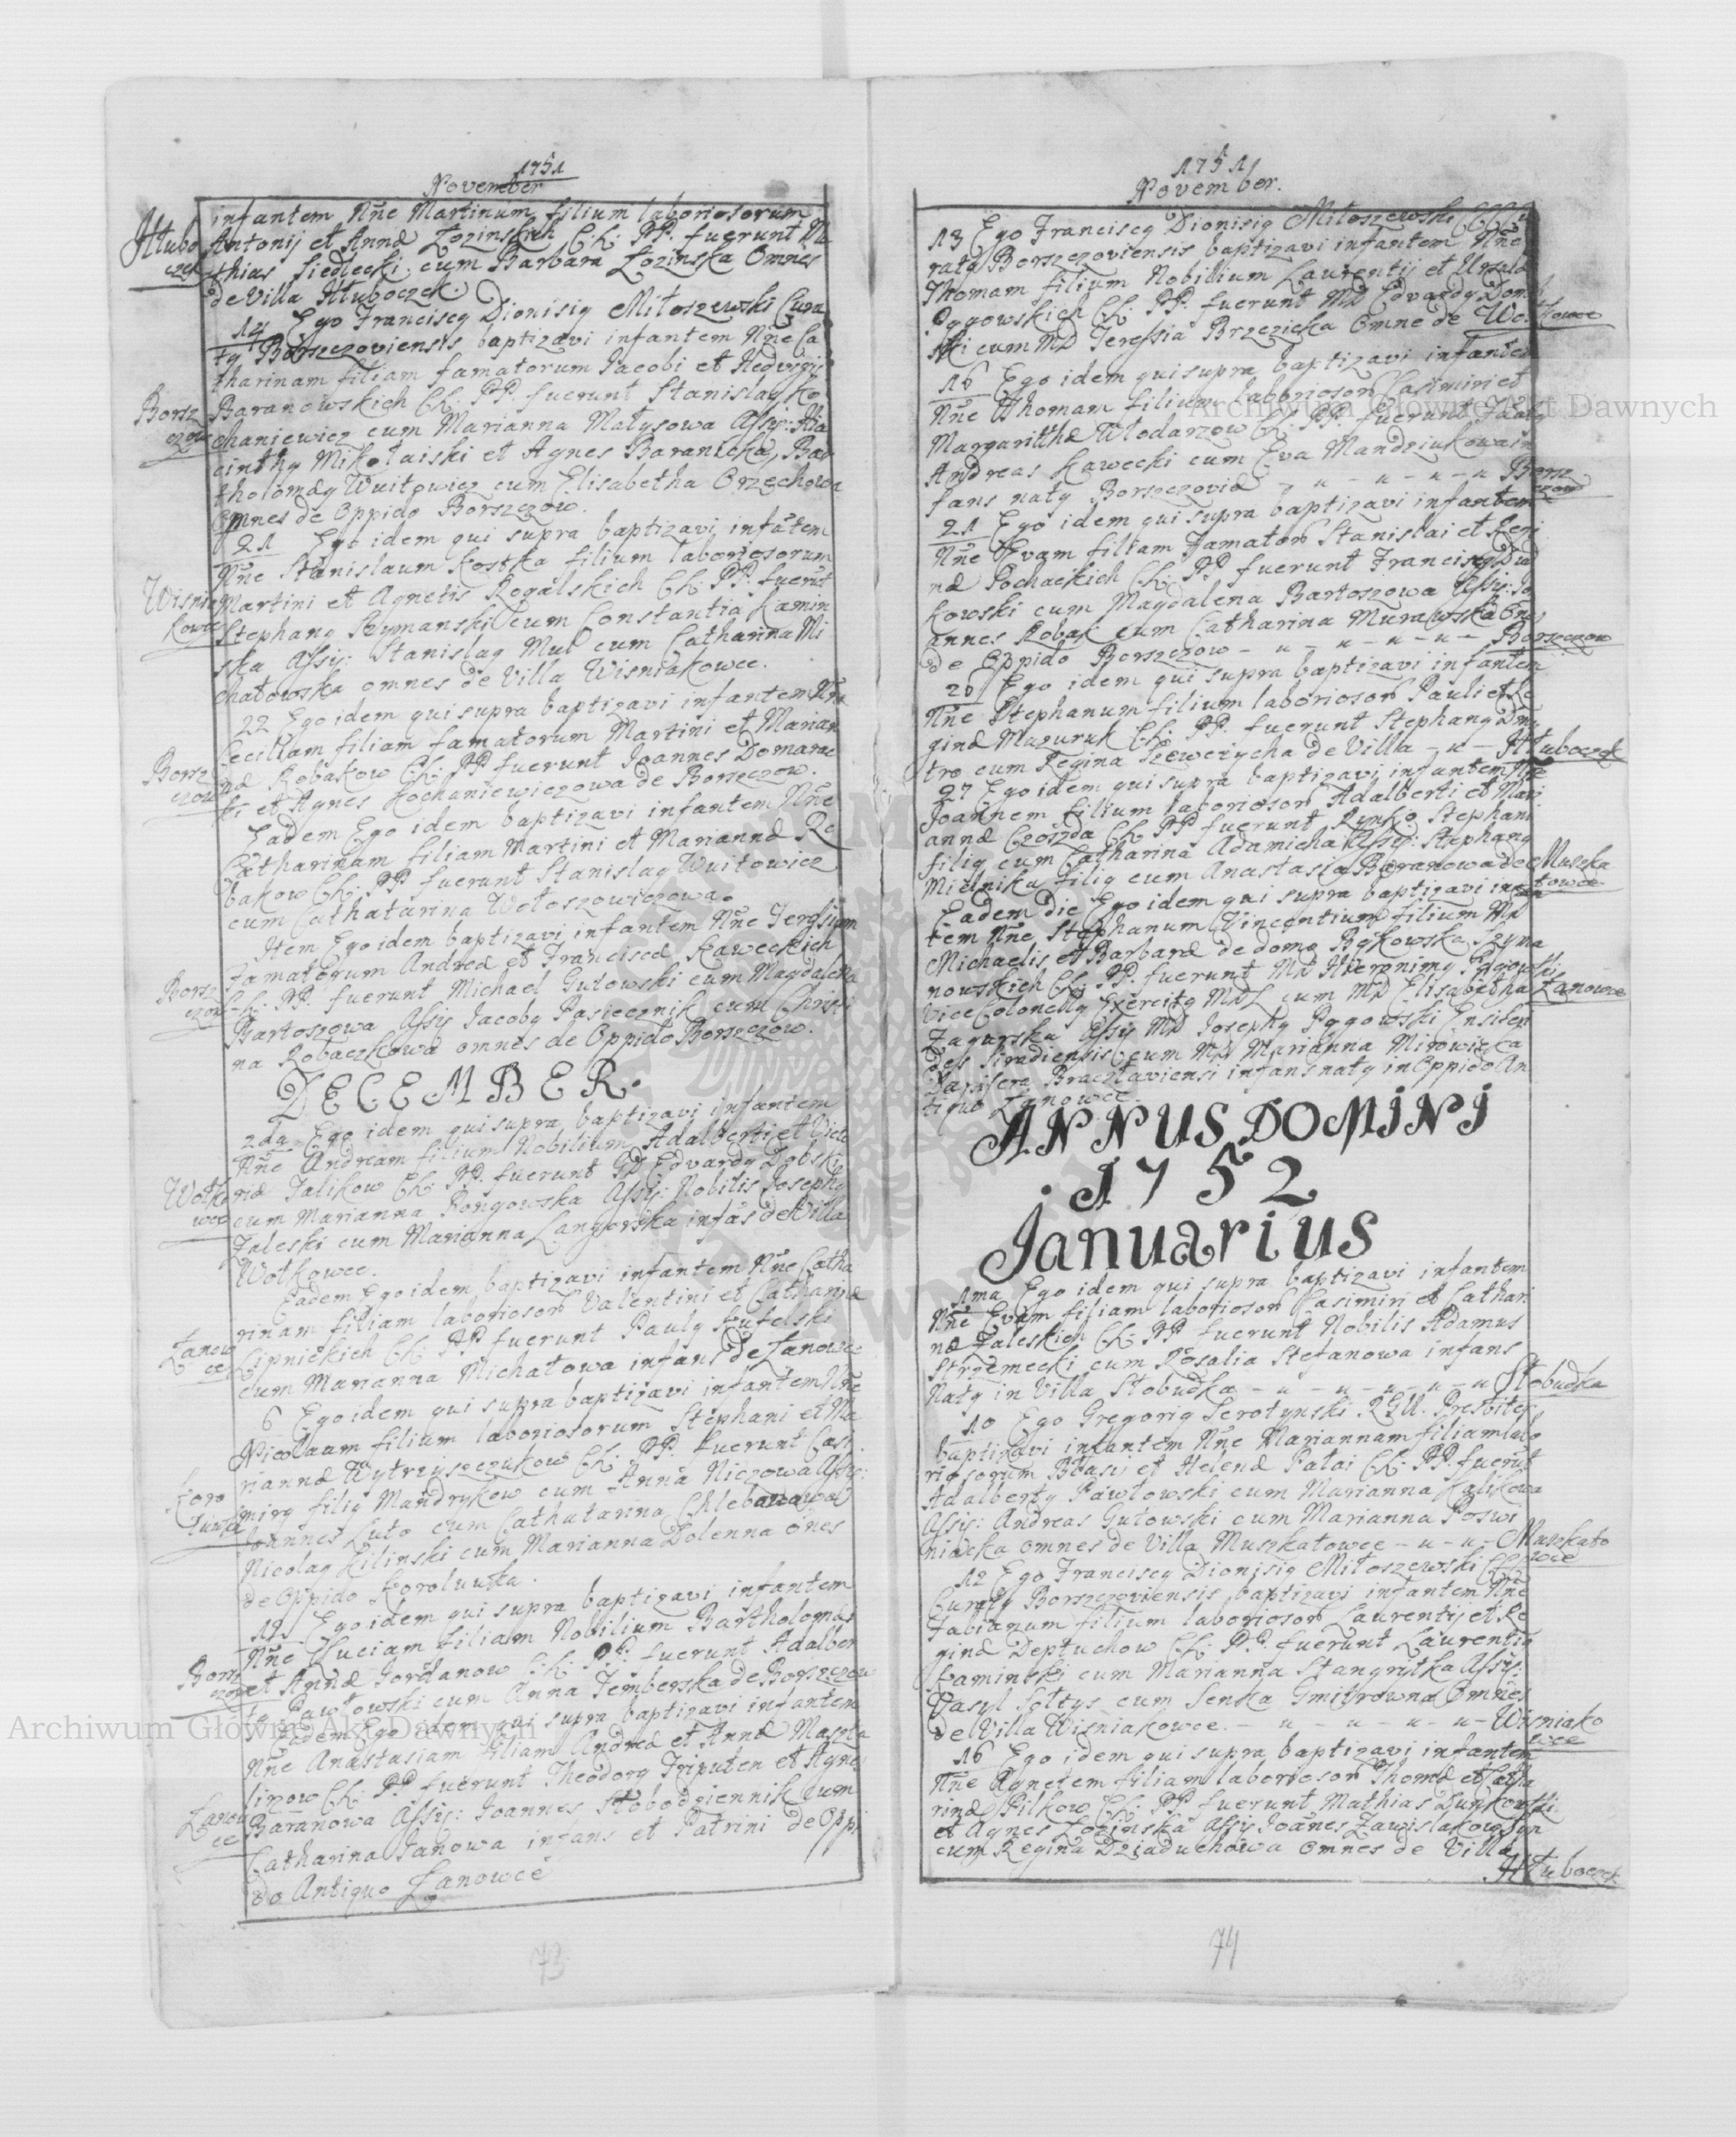 1751
November
infantem Nñe Martinum filium laboriosorum
Hłubo
czek
Antonij et Annæ Łozinskich C.L: PP. fuerunt Ma
thias Siedlecki cum Barbara Łozinska Omnes
de Villa Hłuboczek.
14 Ego Franciscq Dionisiq Miłoszewski Cura
tq Borszczoviensis baptizavi infantem Nñe Ca
tharinam filiam famatorum Jacobi et Hedvigis
Borsz
czow
Baranowskich C.L: PP. fuerunt Stanislaq Ko
chaniewicz cum Marianna Małysowa Assis: Hia
cinthq Mikołaiski et Agnes Baranicka, Bar
tholomæq Wuitowicz cum Elisabetha Orzechowa
Omnes de Oppido Borszczow.
21 Ego idem qui supra baptizavi infãtem
Nñe Stanislaum Kostka filium laboriosorum
Wisnia
kowce
Martini et Agnetis Rogalskich C.L: PP. fuerũt
Stephanq Szymanski cum Constantia Kamin
ska Assis: Stanislaq Mul cum Catharina Mi
chałowska omnes de Villa Wisniakowce.
22 Ego idem qui supra baptizavi infantem Nñe
Ceciliam filiam famatorum Martini et Marian
Borsz
czow
næ Robakow C.L: PP fuerunt Joannes Domarac
ki et Agnes Kochaniewiczowa de Borszczow.
Eadem Ego idem baptizavi infantem Nñe
Catharinam filiam Martini et Mariannæ Ro
bakow C.L: PP fuerunt Stanislaq Wuitowicz
cum Cathatarina Wołoszowiczowa.
Item Ego idem baptizavi infantem Nñe Teressiam
Borsz
czow
Famatorum Andreæ et Franciscæ Kaweckich
C.L: PP. fuerunt Michael Gutowski cum Magdalena
Bartoszowa Assis Jacobq Pasiecznik cum Christi
na Robaczkowa omnes de Oppido Borszczow.
DECEMBER.
2da Ego idem qui supra baptizavi infantem
Nñe Andream filium Nobilium Adalberti et Victo
Wołko
wce
riæ Jalikow C.L: PP. fuerunt GD Edvardq Dobski
cum Marianna Rongowska Assis: Nobilis Josephq
Zaleski cum Marianna Langorska infãs de Villa
Wołkowce.
Eadem Ego idem baptizavi infantem Nñe Catha
rinam filiam laborioson Valentini et Catharinæ
Łanow
ce
Lipnickich C.L: PP fuerunt Paulq Kufelski
cum Marianna Michałowa infans de Łanowce
6 Ego idem qui supra baptizavi infantem Nñe
Nicolaum filium laboriosorum Stephani et Ma
riannæ Wytrzyszczukow C.L: PP. fuerunt Casi
Koro
luwka
mirq filiq Mandrykow cum Anna Niczowa Assis:
Joannes Luto cum Cathatarina Chlebanowa
Nicolaq Kilinski cum Marianna Dolenna oñes
de Oppido Koroluwka.
12 Ego idem qui supra baptizavi infantem
Nñe Luciam filiam Nobilium Bartholomæi
Borsz
czow
et Annæ Jordanow C.L: PP. fuerunt Adalber
tq Pawłowski cum Anna Jemberska de Borszczow
Eadem Ego idem qui supra baptizavi infantem
Nñe Anastasiam filiam Andreæ et Annæ Maszta
Łanow
ce
lizow C.L: PP. fuerunt Theodorq Triputen et Agnes
Baranowa Assis: Joannes Słobodziennik cum
Catharina Janowa infans et Patrini de Oppi
do Antiquo Łanowce
73
1751
November.
13 Ego Franciscq Dionisiq Miłoszewski Cu
ratq Borszczoviensis baptizavi infantem Nñe
Thomam filium Nobilium Laurentij et Ursulæ
Pągowskich C.L: PP. fuerunt MD Edvardq Dom
ski cum MD Teressia Brzezicka Omne de Wołkowce
16 Ego idem qui supra baptizavi infantem
Nñe Thomam filium laborioson Casimiri et
Margarithæ Włodarzow C.L: PP. fuerunt
Andreas Kawecki cum Eva Mandziukowa in
fans natq Borszczoviæ - u - u - u - u Borsz
czow
21 Ego idem qui supra baptizavi infantem
Nñe Evam filiam Famaton Stanislai et Regi
næ Pochackich C.L: PP fuerunt Franciscq Dud
kowski cum Magdalena Bartoszowa Assis: Jo
annes Robak cum Catharina Murawska Oñes
de Oppido Borszczow - u - u - u - Borszczow
26 Ego idem qui supra baptizavi infantem
Nñe Stephanum filium laborioson Pauli et Re
ginæ Mazuruk C.L: PP. fuerunt Stephanq Dmy
tro cum Regina Szewczycha de Villa - u - Hłuboczek
27 Ego idem qui supra baptizavi infantem Nñe
Joannem filium laborioson Adalberti et Mari
annæ Czoszda C.L: PP fuerunt Rynko Stephani
filiq cum Catharina Adamicha Assis: Stephanq
Mielnika filiq cum Anastasia Baranowa de Muszka
towce
Eadem die Ego idem qui supra baptizavi infan
tem Nñe Stephanum Vincentium filium MD
Michaelis et Barbaræ de domo Bykowska Szyma
nowskich C.L: PP. fuerunt MD Hieronimq Pągowski
Vice Colonellq Exercitq MDL cum MD Elisabetha Łanowce
Zagurska Assis MD Josephq Pągowski Ensifer
des Siradiensis cum MD Marianna Mirowicka
Dapifera Bracztaviensi infans natq in Oppido An
tiquo Łanowce.
ANNUS DOMINI
1752
Januarius
1ma Ego idem qui supra baptizavi infantem
Nñe Evam filiam laborioson Casimiri et Cathari
næ Zaleskich C.L: PP fuerunt Nobilis Adamus
Strzemecki cum Rosalia Stefanowa infans
natq in Villa Słobudka - u - u - u - u - u Słobudka
10 Ego Gregoriq Serotynski R.G.U. Presbiter
baptizavi infantem Nñe Mariannam filiam labo
riosorum Błasij et Helenæ Patai C.L: PP. fuerũt
Adalbertq Pawłowski cum Marianna Kalikowa
Assis: Andreas Gutowski cum Marianna Poswi
niacka omnes de Villa Muszkatowce - u - u - Muszkato
wce
12 Ego Franciscq Dionisiq Miłoszewski
Curatq Borszczoviensis baptizavi infantem Nñe
Fabianum filium laborioson Laurentij et Re
ginæ Deptuchow C.L: PP. fuerunt Laurentiq
Kaminski cum Marianna Stangrytka Assis:
Vasyl Sołtys cum Senka Gmitrowna Omnes
de Villa Wisniakowce. - u - u - u - u - Wisniako
wce
16 Ego idem qui supra baptizavi infantem
Nñe Agnetem filiam laborioson Thomæ et Catha
rinæ Pilkow C.L: PP fuerunt Mathias Dunkowski
et Agnes Łozinska Assis Joãnes Zawislakow Syn
cum Regina Dziaduchowa omnes de Villa
Hłuboczek
74
Archiwum Główne Akt Dawnych
Archiwum Główne Akt Dawnych